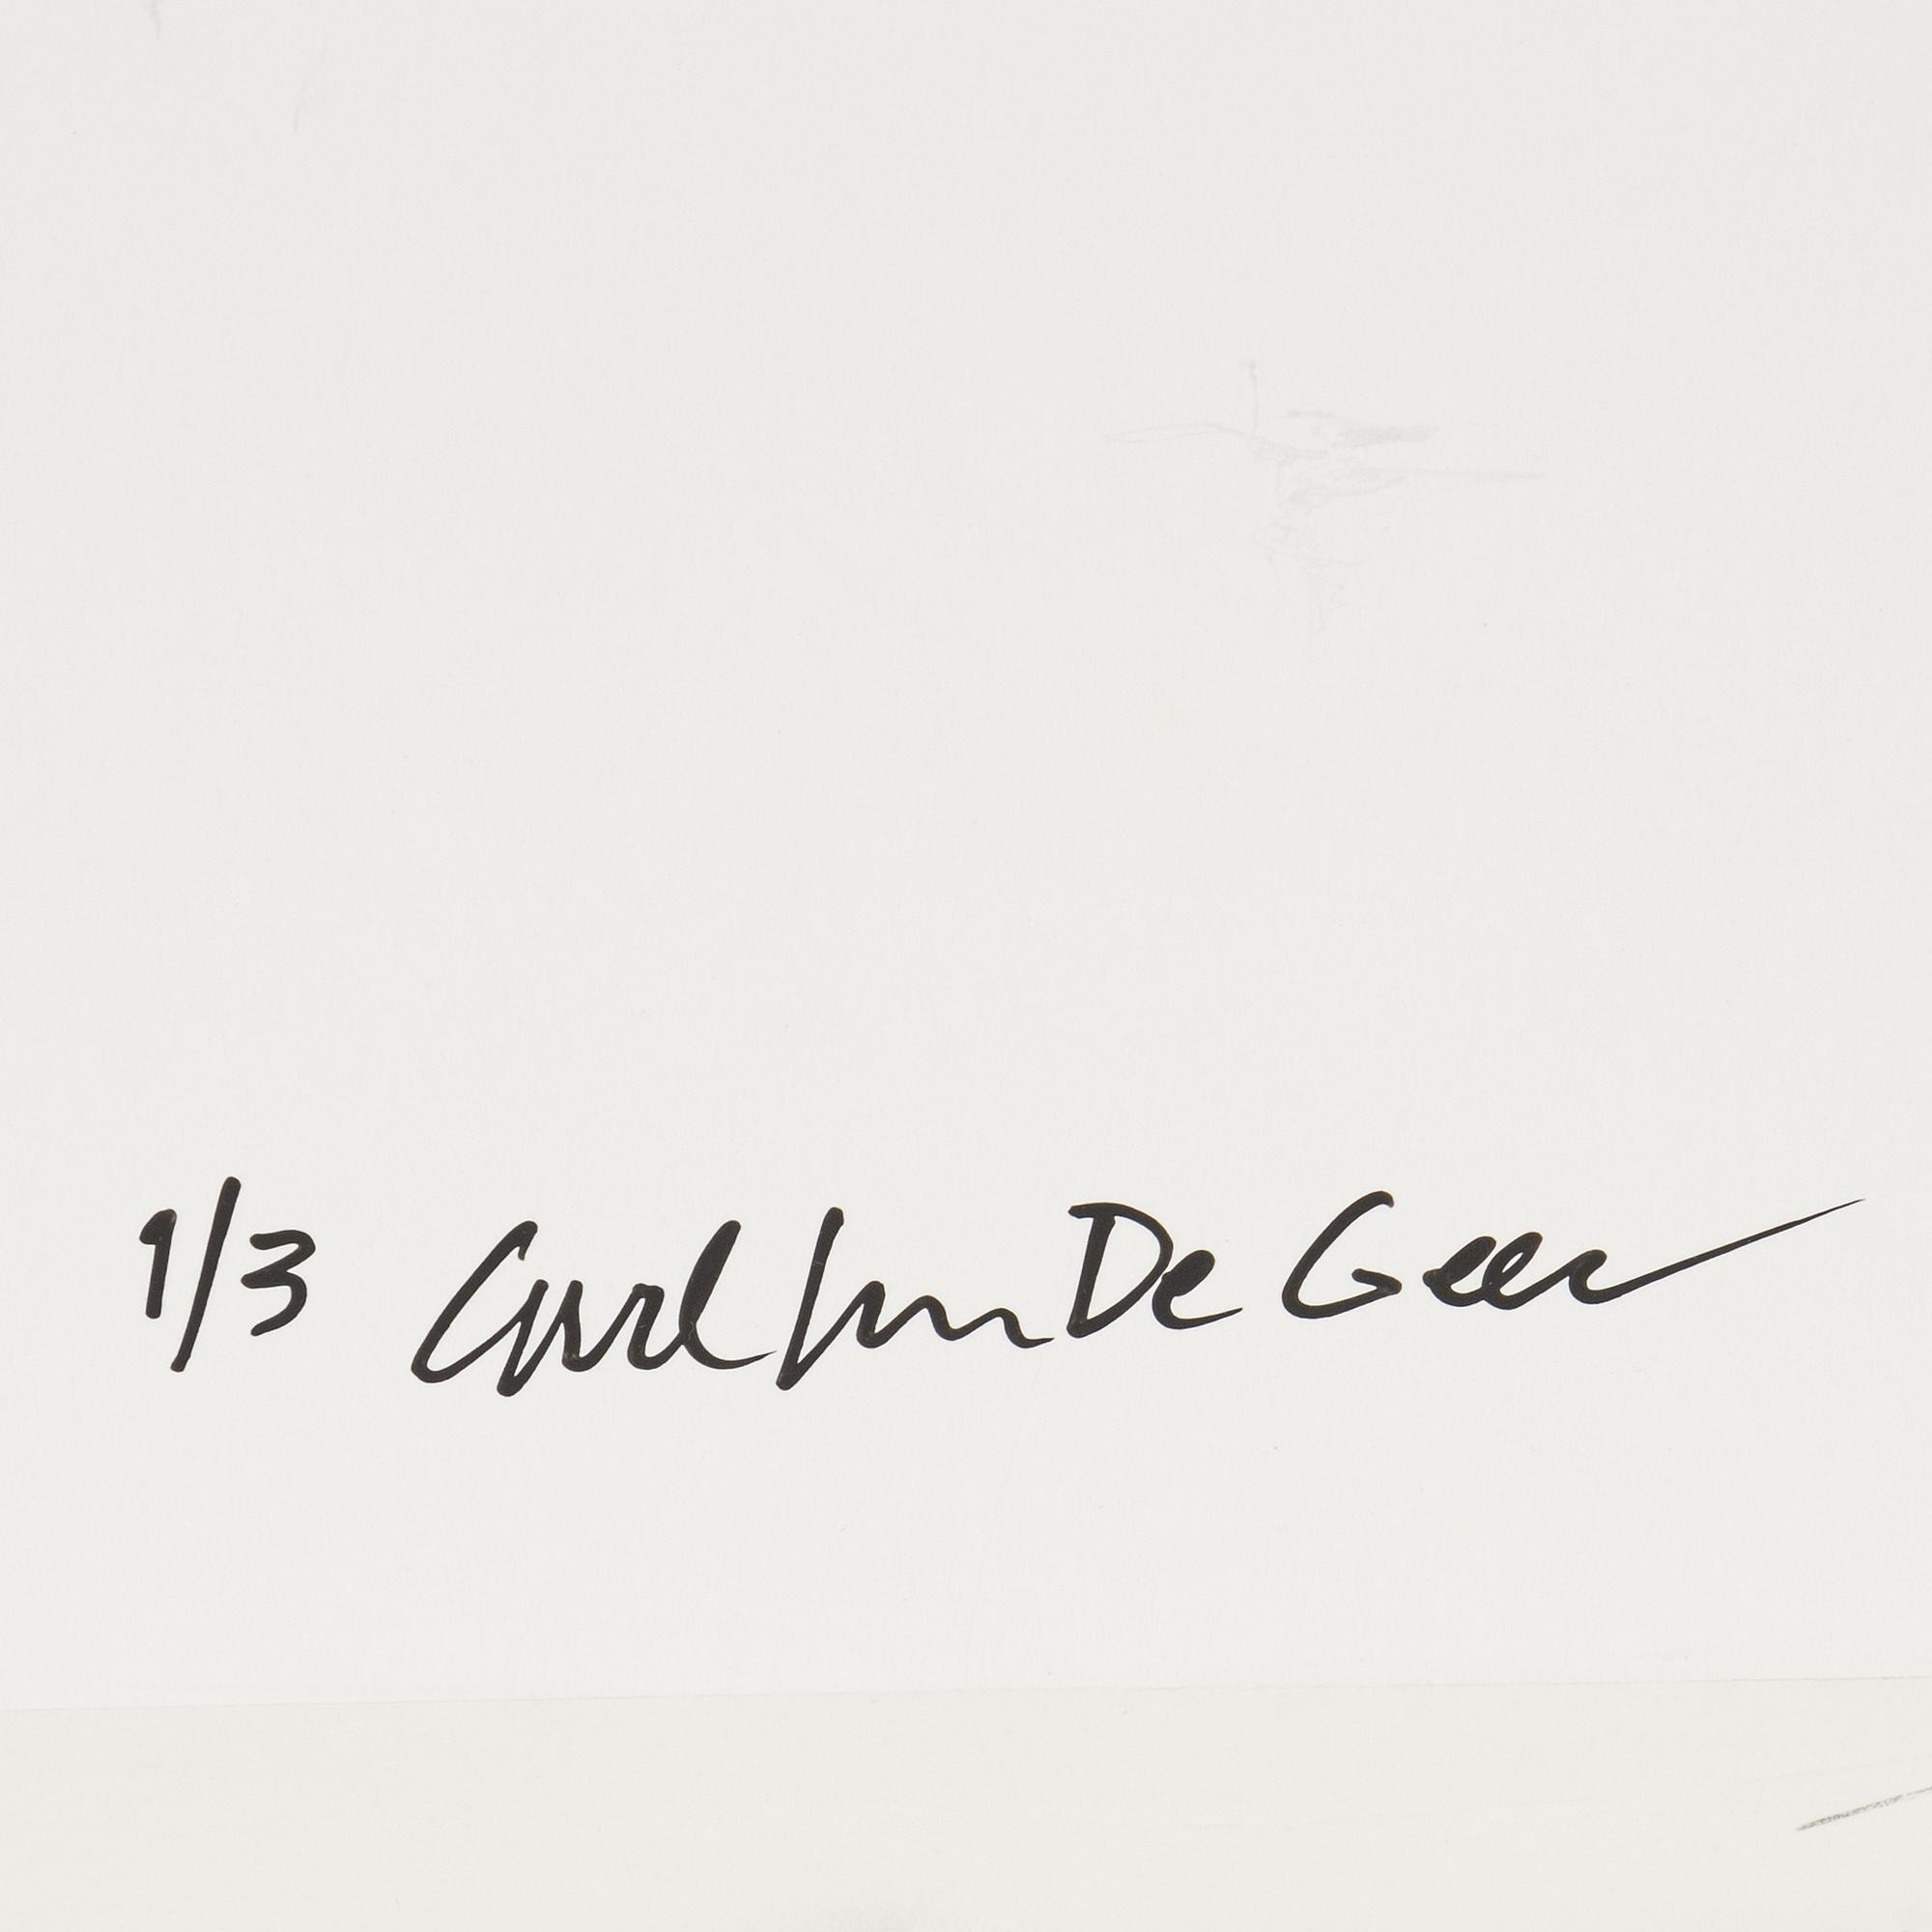 1/3 Carl Johan De Geer